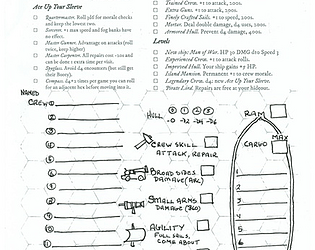 Ace Up Your Sleeve
Quartermaster. Roll 3d6 for morale checks
and keep the lowest two.
Sorcerer. +1 max speed and fog banks have
no effect.
Master Gunner. Advantage on attacks (roll
twice, keep higher)
Master Carpenter. All repairs cost
can be done 1 extra time per visit.
Spyglass. Avoid d4 encounters (but still get
their Booty).
Compass. d4+2 times per game you can roll
for an adjacent hex before moving into it.
Trained Crew. +1 to attack, 100s.
Extra Guns. +1 to attack, 200s.
Finely Crafted Sails. +1 to speed, 200s.
Mortar. Deal double damage, d4 uses, 200s.
Armored Hull. Prevent d4 damage, 400s.
Levels
New ship: Man of War. HP 30 DMG d10 Speed 3
Experienced Crew. +1 to attack rolls.
Improved Hull. Your ship gains +5 HP.
Island Mansion. Permanent +1 to crew morale.
Legendary Crew. d4: new Ace Up Your Sleeve.
Pirate Lord. Repairs are free at your hideout.
NAMED
CREW
HULL
CREW SKILL
ATTACK, REPAIR
BROAD SIDES
DAMAGE (ARC)
SMALL ARMS
DAMAGE (360)
AGILITY
FULL SAILS,
COME ABOUT
RAM
CARGO
MAX
1
2
3
4
5
6